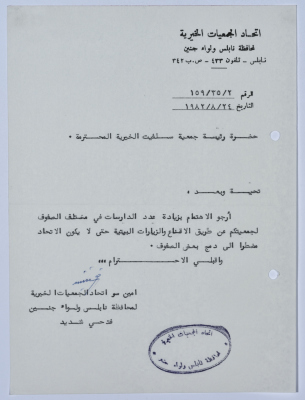 اتحاد الجمعيات الخيرية
لمحافظة نابلس ولواء جنين
نابلس - تلفون ٤٣٣ - ص.ب ٣٤٢
الرقم ١٥٩/٣٥/٢
التاريخ ١٩٨٢/٨/٢٤
حضرة رئيسة جمعية سلفيت الخيرية المحترمة ٠
تحية وبعد ،
أرجو الاهتمام بزيادة عدد الدارسات في مختلف الصفوف
لجمعيتكم عن طريق الاقناع والزيارات البيتية حتى لا يكون الاتحاد
مضطرا الى دمج بعض الصفوف ٠
واقبلي الاحترام ،،،
امين سر اتحاد الجمعيات الخيرية
لمحافظة نابلس ولواء جنين
اتحاد الجمعيات الخيرية
لمحافظة نابلس ولواء جنين